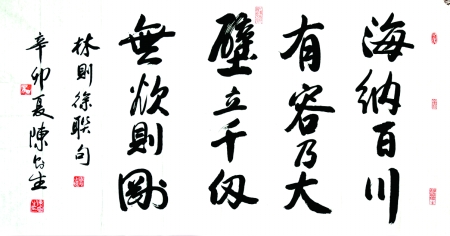 海納百川
有容乃大
壁立千仞
無欲則剛
林則徐聯句
辛卯夏陳